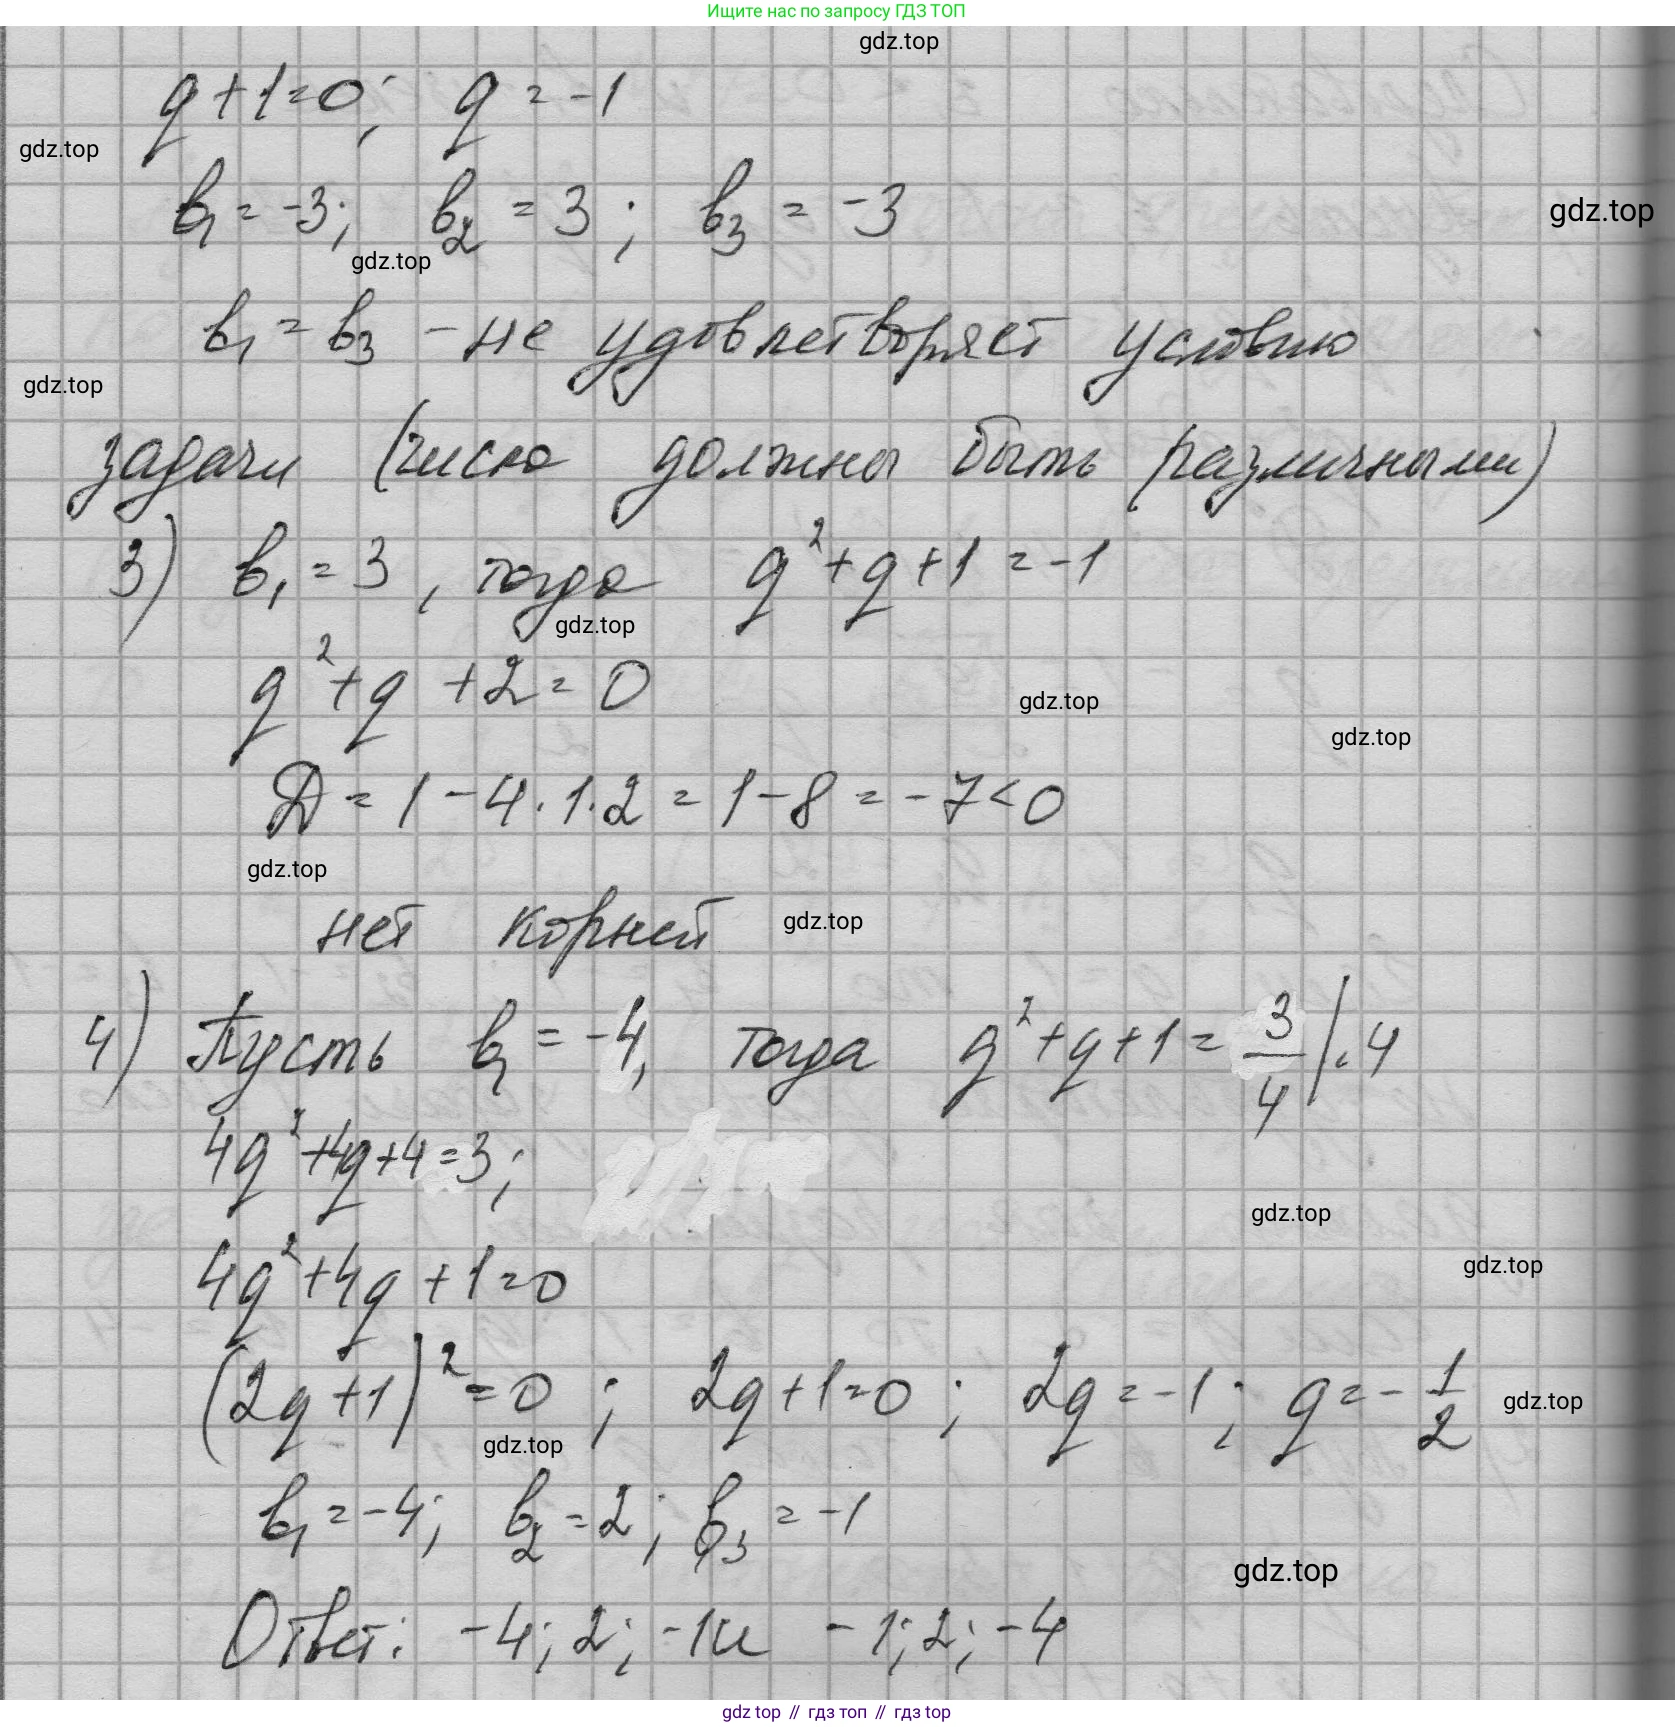 Ищите нас по запросу ГДЗ ТОП
gdz.top
q + 1 = 0; q = -1
gdz.top
b₁ = -3; b₂ = 3; b₃ = -3
gdz.top
gdz.top
b₁ = b₃ - не удовлетворяет условию
gdz.top
задачи (число должны быть различными)
3) b₁ = 3, тогда q² + q + 1 = -1
gdz.top
q² + q + 2 = 0
gdz.top
gdz.top
Д = 1 - 4 · 1 · 2 = 1 - 8 = -7 < 0
gdz.top
нет корней
gdz.top
4) Пусть b₁ = -4, тогда q² + q + 1 = 3/4 | · 4
4q² + 4q + 4 = 3;
gdz.top
4q² + 4q + 1 = 0
gdz.top
(2q + 1)² = 0; 2q + 1 = 0; 2q = -1; q = -1/2
gdz.top
gdz.top
b₁ = -4; b₂ = 2; b₃ = -1
gdz.top
Ответ: -4; 2; -1 и -1; 2; -4
gdz top // гдз топ // гдз top